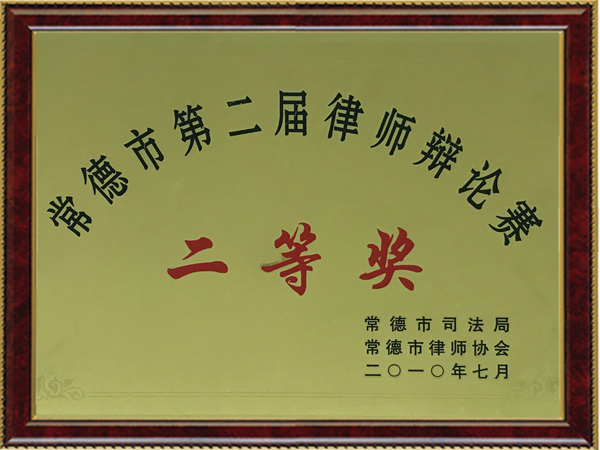 常德市第二届律师辩论赛
二等奖
常德市司法局
常德市律师协会
二〇一〇年七月